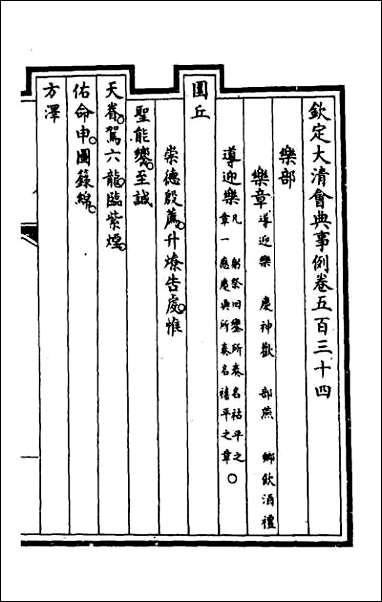 欽定大清會典事例卷五百三十四
樂部
樂章導迎樂 慶神歡 部燕 鄉飲酒禮
導迎樂凡躬祭旧鑾所奏名祜平之章一應慶典所奏名禧平之章○
圜丘
崇德殷薦升燎告虔惟
聖能饗至誠
天眷駕六龍臨紫煙
佑命申圖籙綿
方澤